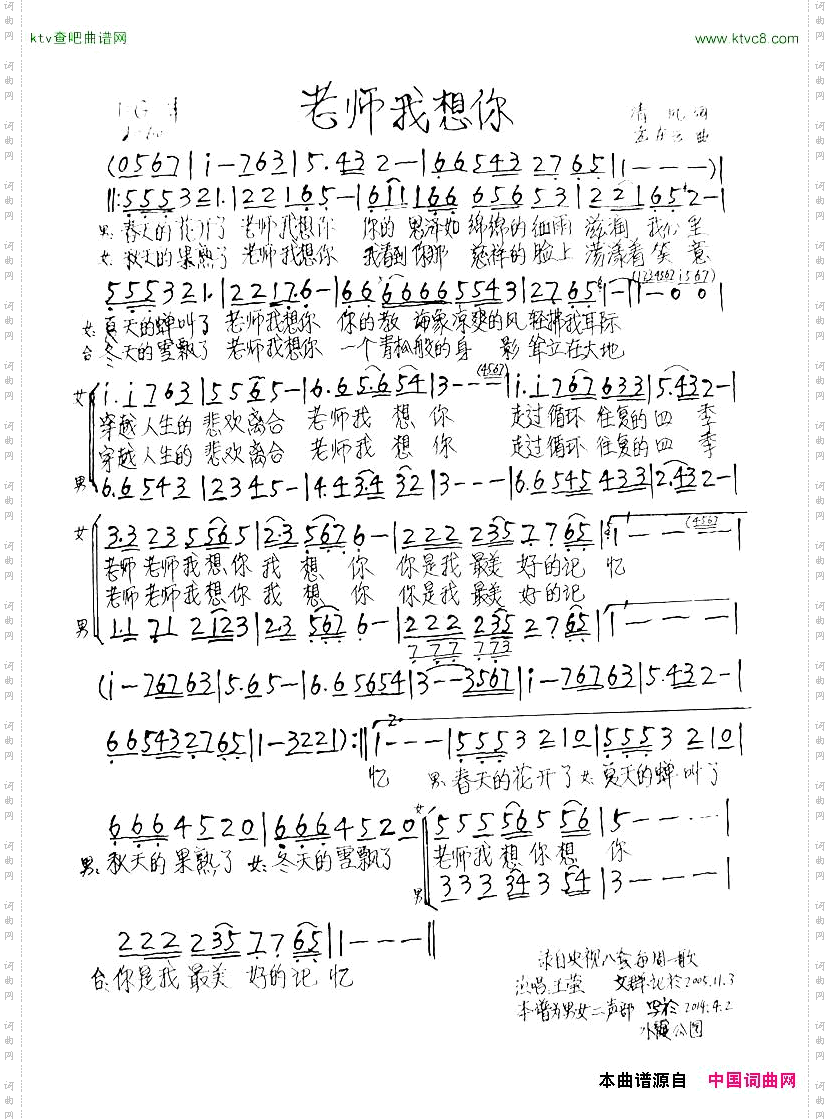 ktv查吧曲谱网
www.ktvc8.com
老师我想你
清风词
曲
(0 5 6 7 | i - 7 6 3 | 5. 4 3 2 - | 6 6 5 4 3 2 7 6 5 | 1 - - - ) |
||: 5 5 5 3 2 1. | 2 2 1 6 5 - | 6 i i 1 6 6 6 5 6 5 3 | 2 2 1 6 5 2 - |
男:春天的花开了 老师我想你 你的恩泽如绵绵的细雨滋润我们至
女:秋天的果熟了 老师我想你 我看到你那慈祥的脸上荡漾着笑意
5 5 5 3 2 1. | 2 2 1 7. 6 - | 6 6 6 6 6 6 5 5 4 3 | 2 7 6 5 | 1 - - | 1 - 0 0 |
(1 2 3 4 5 6 7 i 5 6 7)
女:夏天的蝉叫了 老师我想你 你的教诲象凉爽的风轻拂我耳际
合:冬天的雪飘了 老师我想你 一个青松般的身影耸立在大地
女 i. i 7 6 3 | 5 5 6 5 - | 6. 6 5. 6 5 4 | 3 - - - (4567) | i. i 7 6 7 6 3 3 | 5. 4 3 2 - |
穿越人生的悲欢离合 老师我想你 走过循环往复的四季
穿越人生的悲欢离合 老师我想你 走过循环往复的四季
男 6. 6 5 4 3 | 2 3 4 5 - | 4. 4 3. 4 3 2 | 3 - - - | 6. 6 5 4 5 4 3 3 | 2. 4 3 2 - |
女 3. 3 2 3 5 5 6 5 | 2. 3 5 6 7 6 - | 2 2 2 2 3 5 7 7 6 5 | 1 - - - (4567) |
老师老师我想你我想你 你是我最美好的记忆
老师老师我想你我想你 你是我最美好的记
男 1. 1 7 1 2 1 2 3 | 2. 3 5 6 7 6 - | 2 2 2 2 3 5 2 7 6 5 | 1 - - - |
7 7 7 7 7 3
(i - 7 6 7 6 3 | 5. 6 5 - | 6. 6 5 6 5 4 | 3 - - 3 5 6 7 | i - 7 6 7 6 3 | 5. 4 3 2 - |
6 6 5 4 3 2 7 6 5 | 1 - 3 2 2 1 ) :|| 2. 1 - - - | 5 5 5 3 2 1 0 | 5 5 5 3 2 1 0 |
忆 男:春天的花开了 女:夏天的蝉叫了
6 6 6 4 5 2 0 | 6 6 6 4 5 2 0 | 女 5 5 5 5 6 5 5 6 | 5 - - - |
男:秋天的果熟了 女:冬天的雪飘了 老师我想你想你
男 3 3 3 3 4 3 5 4 | 3 - - - |
2 2 2 2 3 5 7 7 6 5 | 1 - - - ||
合:你是我最美好的记忆
录自央视八套每周一歌
演唱:王莹 记於2005.11.3
本谱为男女二声部 写於2014.4.2
公园
本曲谱源自 中国词曲网
词曲网